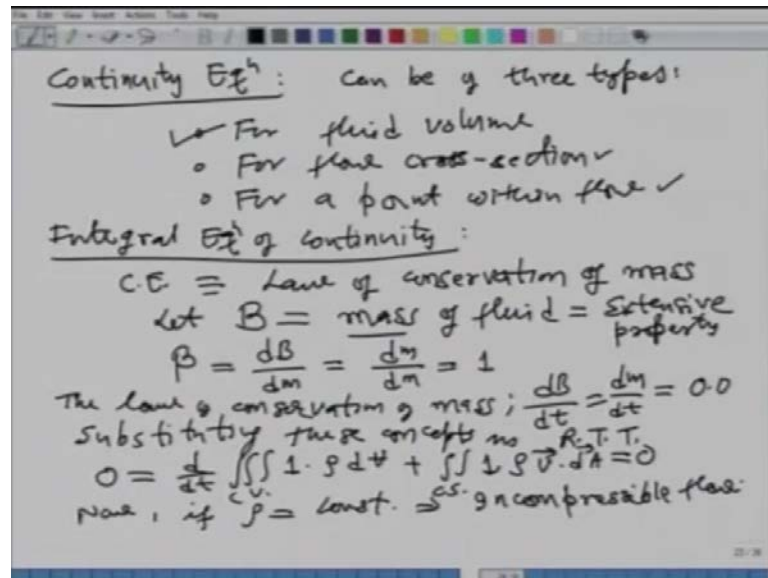 File Edit View Insert Actions Tools Help
Continuity Eqⁿ : Can be of three types:
✓ For fluid volume
• For flow cross-section ✓
• For a point within flow ✓
Integral Eqⁿ of continuity :
C.E. ≡ Law of conservation of mass
Let B = mass of fluid = Extensive property
β = dB/dm = dm/dm = 1
The law of conservation of mass; dB/dt = dm/dt = 0.0
Substituting these concepts in R.T.T.
0 = d/dt ∭_{C.V.} 1. ρ dV + ∬_{C.S.} 1 ρ v⃗. dA⃗ = 0
Now, if ρ = const. ⇒ incompressible flow.